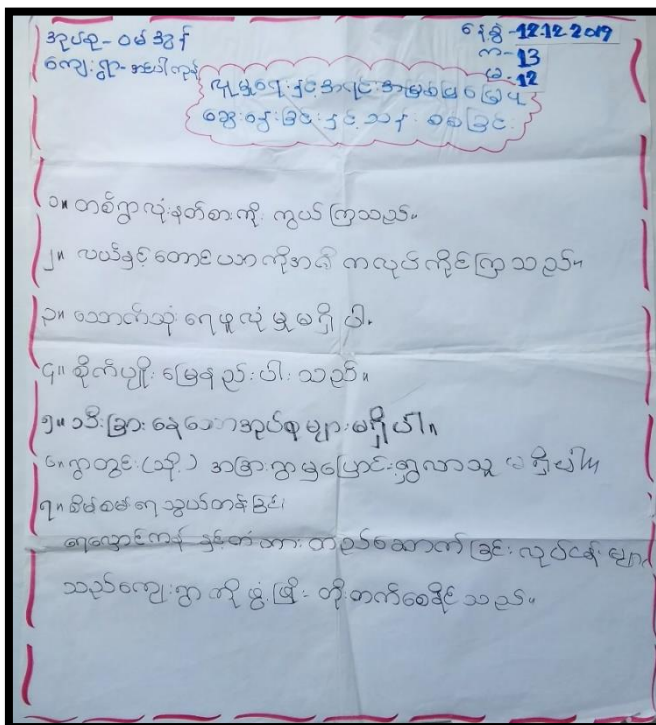 အုပ်စု - ဝမ်အွန်
နေ့စွဲ - 12.12.2019
ကျေးရွာ -
က - 13
မ - 12
လူမှုရေးနှင့်အရင်းအမြစ်မြေပုံ
ဆွေးနွေးခြင်းနှင့်သန်းစစ်ခြင်း
၁။ တစ်ရွာလုံးနတ်စားကို ကွယ်ကြသည်။
၂။ လယ်နှင့်တောင်ယာကိုအဓိကလုပ်ကိုင်ကြသည်။
၃။ သောက်သုံးရေဖူလုံမှုမရှိပါ။
၄။ စိုက်ပျိုးမြေနည်းပါးသည်။
၅။ သီးခြားနေသောအုပ်စုများမရှိပါ။
၆။ ရွာတွင်း (သို့) အခြားရွာမှပြောင်းရွှေ့လာသူ မရှိပါ။
၇။ စိမ်စမ်ရေသွယ်တန်ခြင်း၊
ရေလှောင်ကန် နှင့်တံတား တည်ဆောက်ခြင်း လုပ်ငန်းများ
သည်ကျေးရွာကိုဖွံ့ဖြိုး တိုးတက်စေနိုင်သည်။